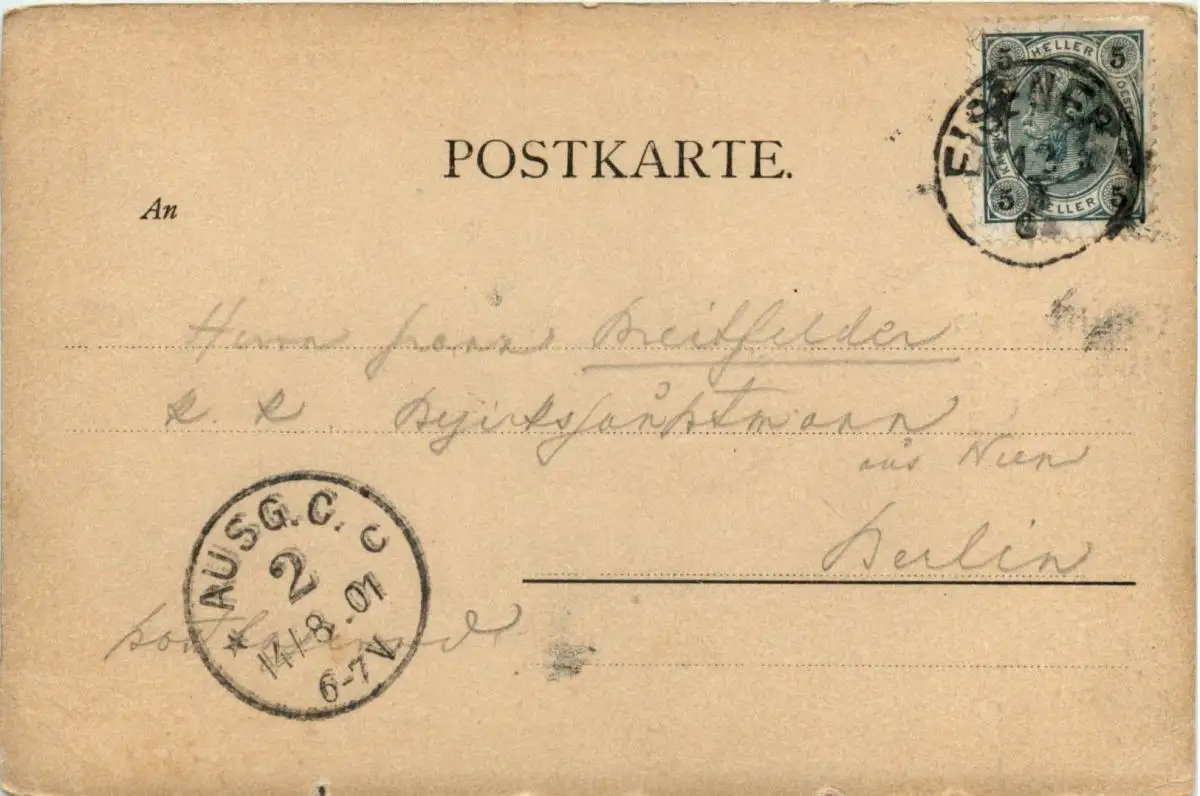 POSTKARTE.
5 HELLER 5
5 HELLER 5
EISENER
12
An
Herrn Franz Breitfelder
K. K. Bezirkshauptmann
aus Wien
Berlin
postlagernd
AUSG. C. C
2
14/8.01
6-7V